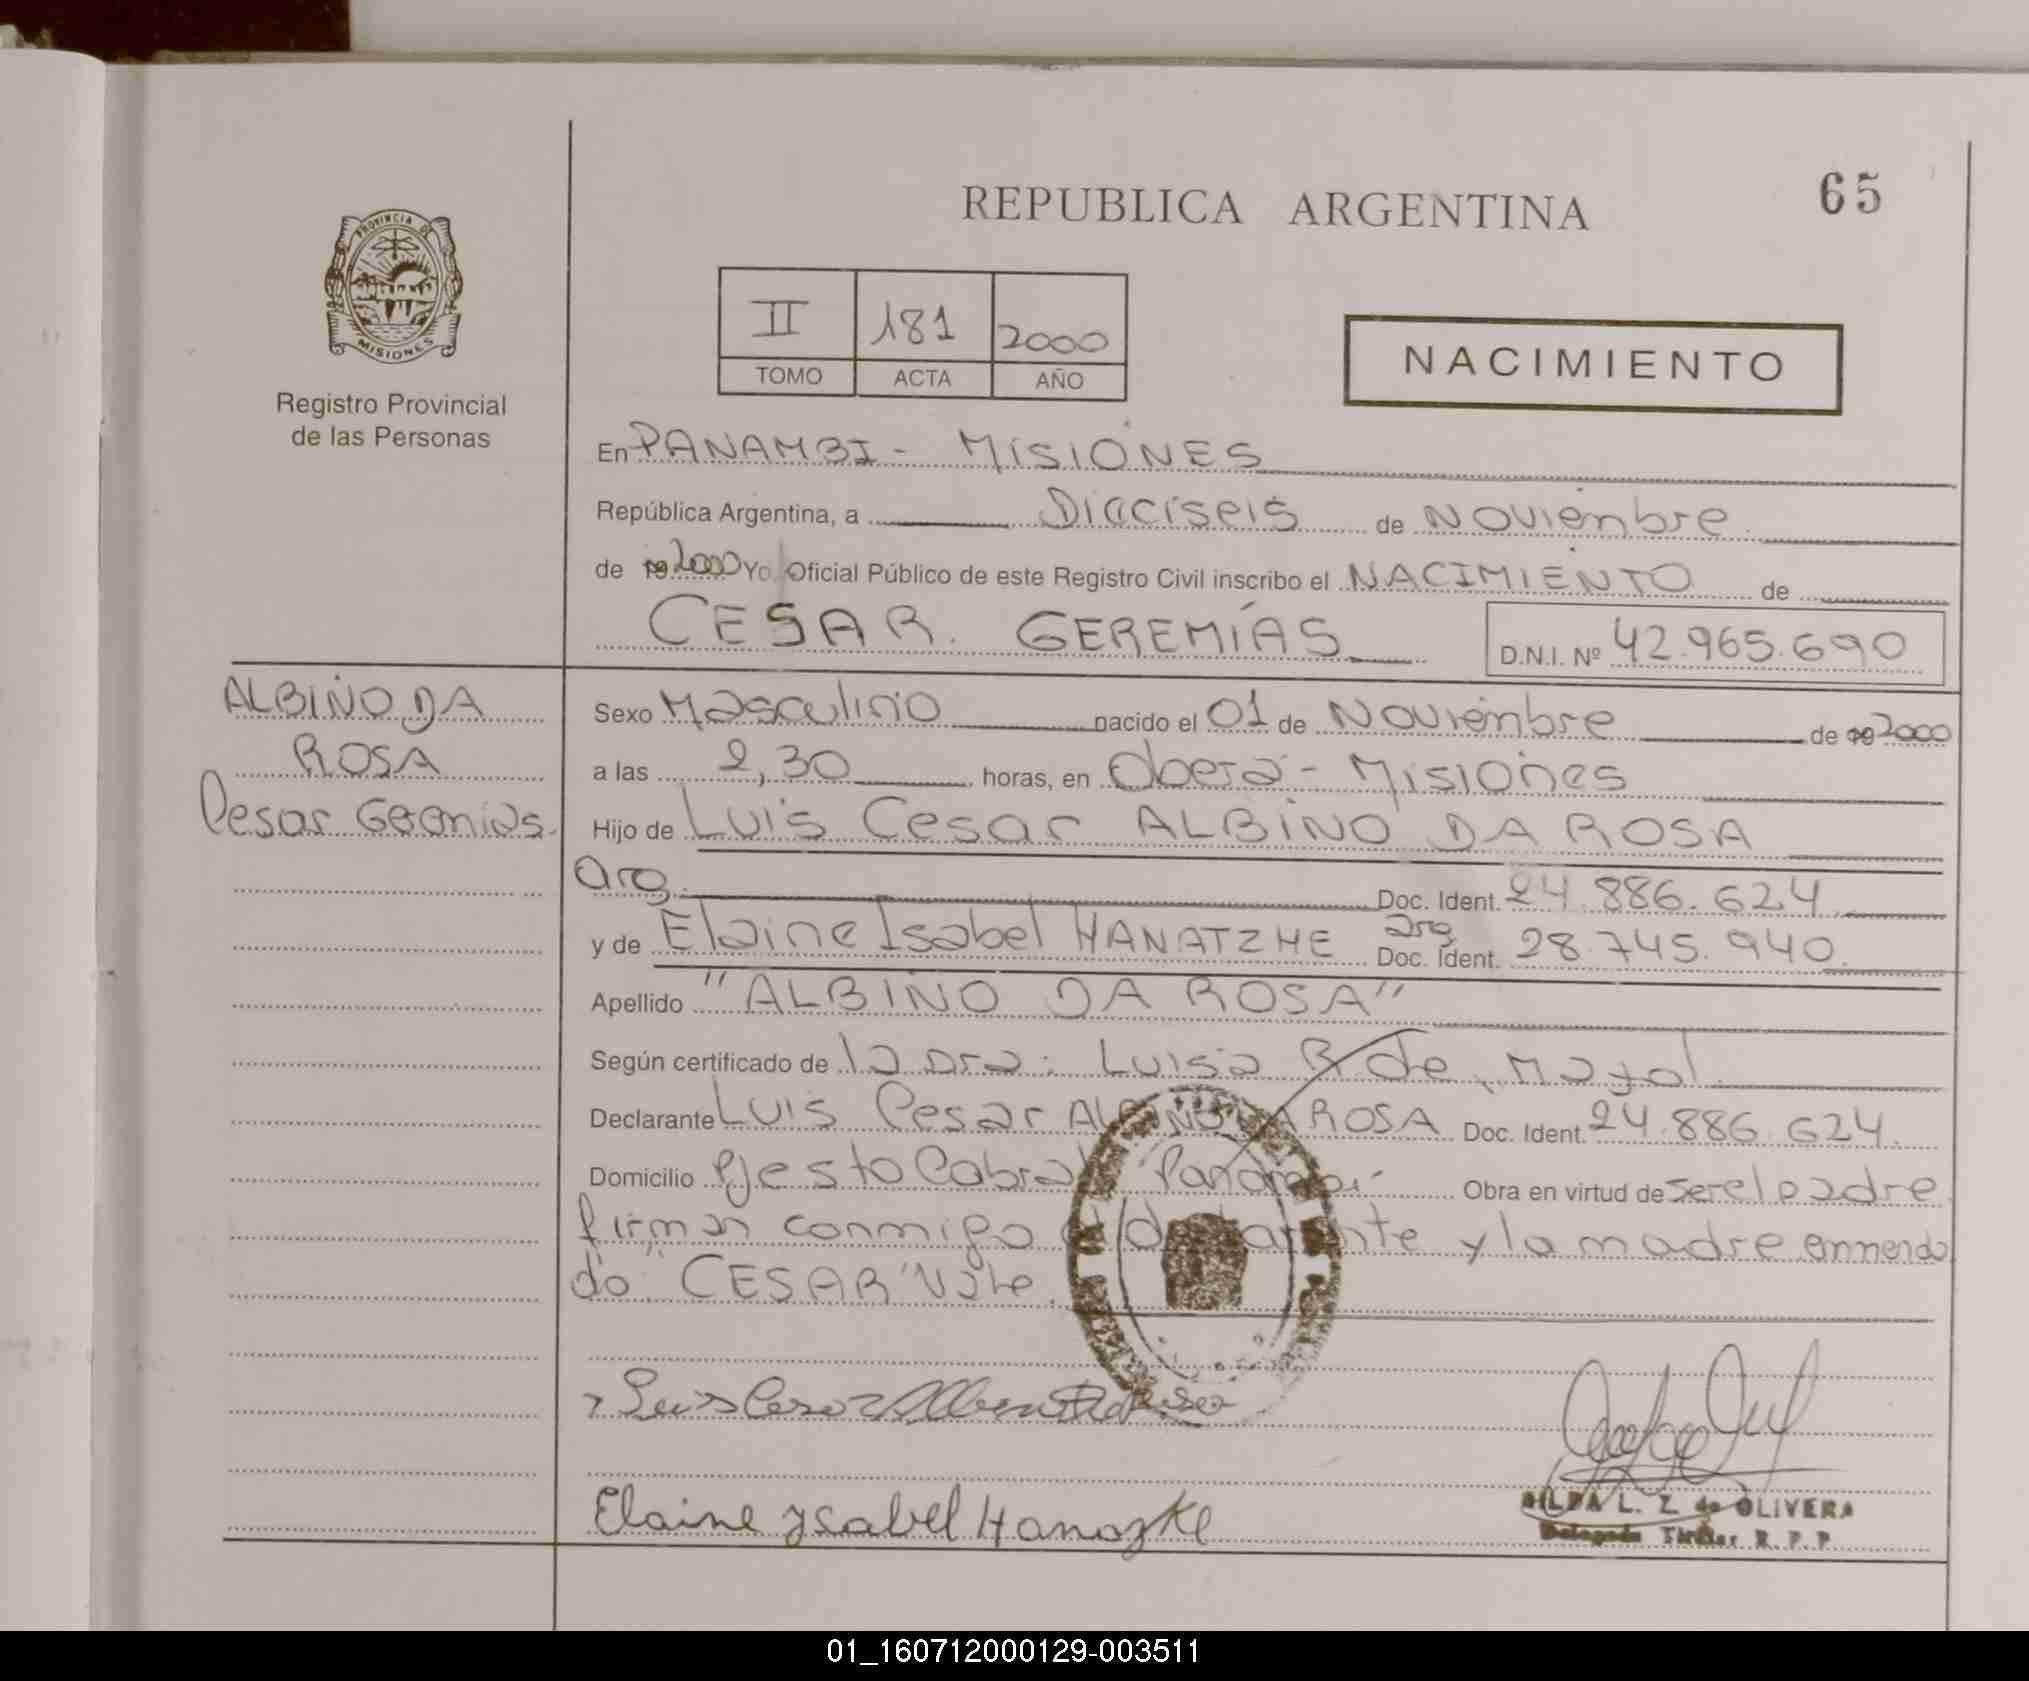 65
REPUBLICA ARGENTINA
PROVINCIA DE
MISIONES
Registro Provincial
de las Personas
II 181 2000
TOMO ACTA AÑO
NACIMIENTO
En PANAMBI - MISIONES
República Argentina, a Dieciseis de Noviembre
de 19 2000 Yo Oficial Público de este Registro Civil inscribo el NACIMIENTO de
CESAR. GEREMÍAS D.N.I. Nº 42.965.690
ALBINO DA
ROSA
Cesar Geremias.
Sexo Masculino nacido el 01 de Noviembre de 19 2000
a las 2,30 horas, en Oberá - Misiones
Hijo de Luis Cesar ALBINO DA ROSA
arg. Doc. Ident. 24.886.624
y de Elaine Isabel HANATZHE arg Doc. Ident. 28.745.940.
Apellido "ALBINO DA ROSA"
Según certificado de la Dra: Luisa B de Mayol
Declarante Luis Cesar ALBINO DA ROSA Doc. Ident. 24.886.624.
Domicilio Pje sto Cabral Panambí Obra en virtud de ser el padre
firman conmigo el declarante y la madre enmenda
do "CESAR" Vale.
Luis Cesar Albino Da Rosa
Elaine Ysabel Hanazke
HILDA L. Z. de OLIVERA
Delegada Titular R. P. P.
01_160712000129-003511